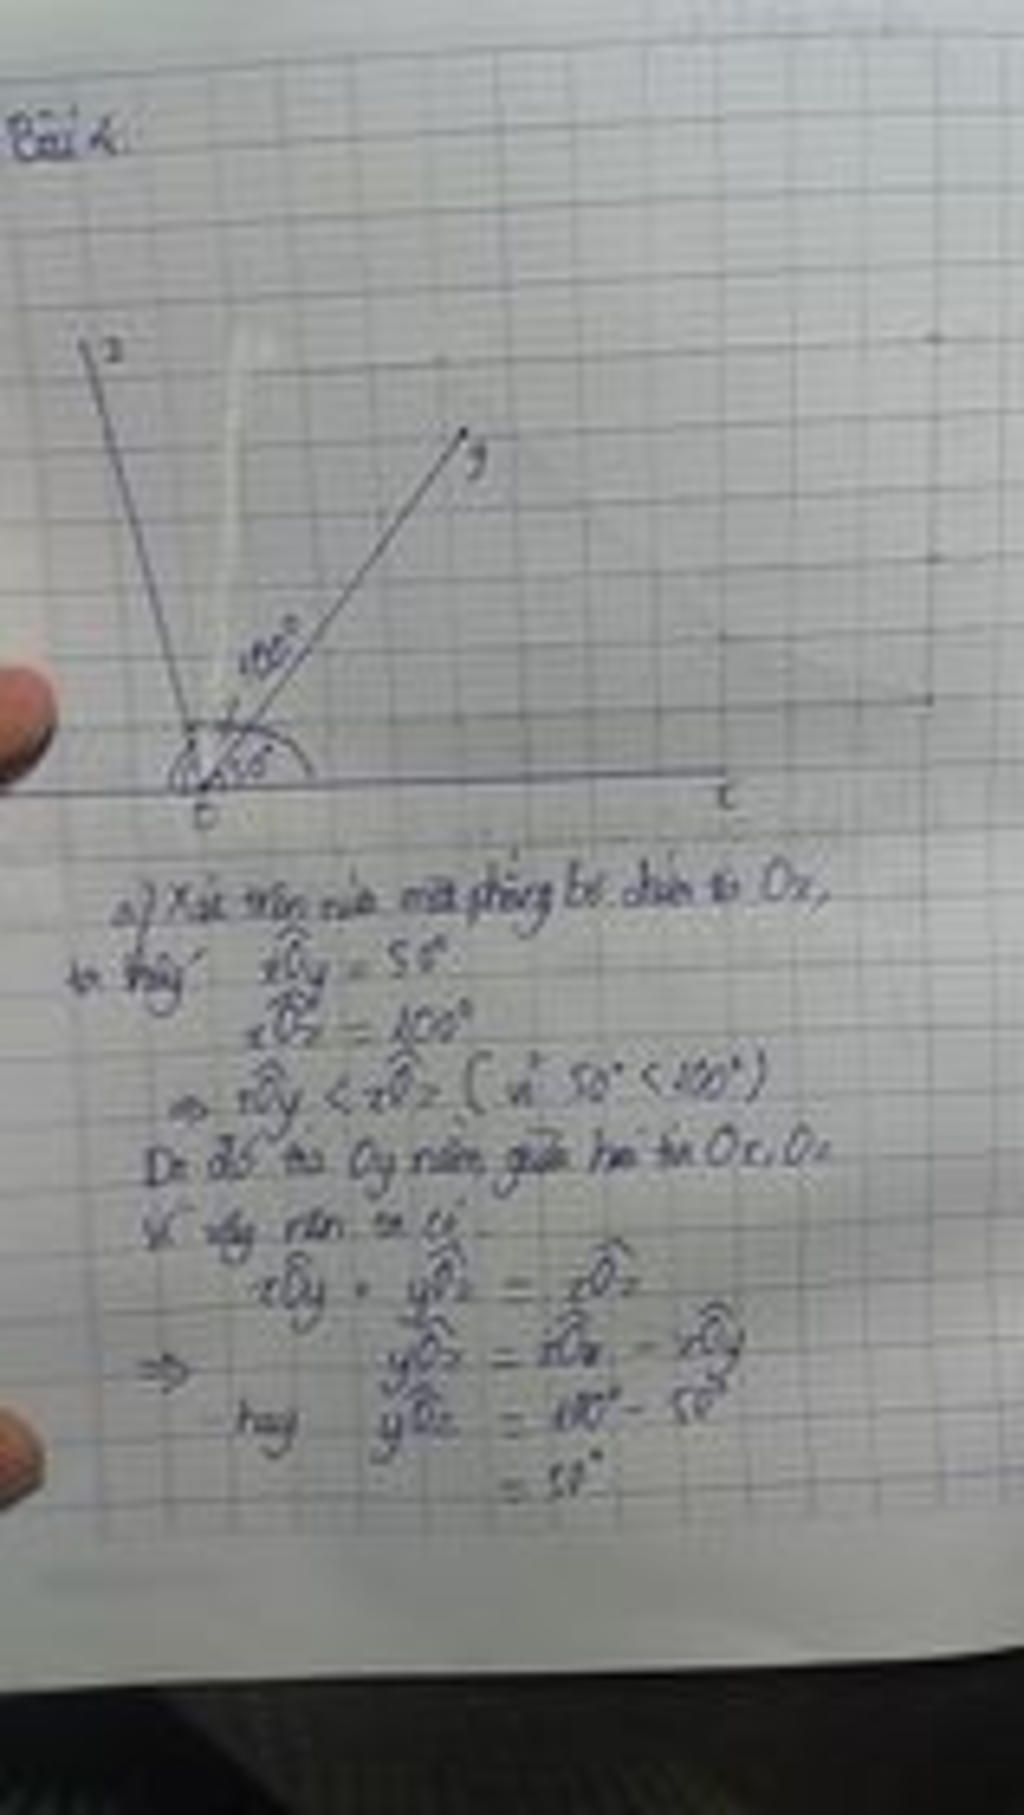 Bài 4.
z
y
100°
50°
O
x
a) Xét trên nửa mặt phẳng bờ chứa tia Ox,
ta thấy xOy = 50°
xOz = 100°
=> xOy < xOz ( vì 50° < 100° )
Do đó tia Oy nằm giữa hai tia Ox, Oz
Vì vậy nên ta có
xOy + yOz = xOz
=> yOz = xOz - xOy
hay yOz = 100° - 50°
= 50°